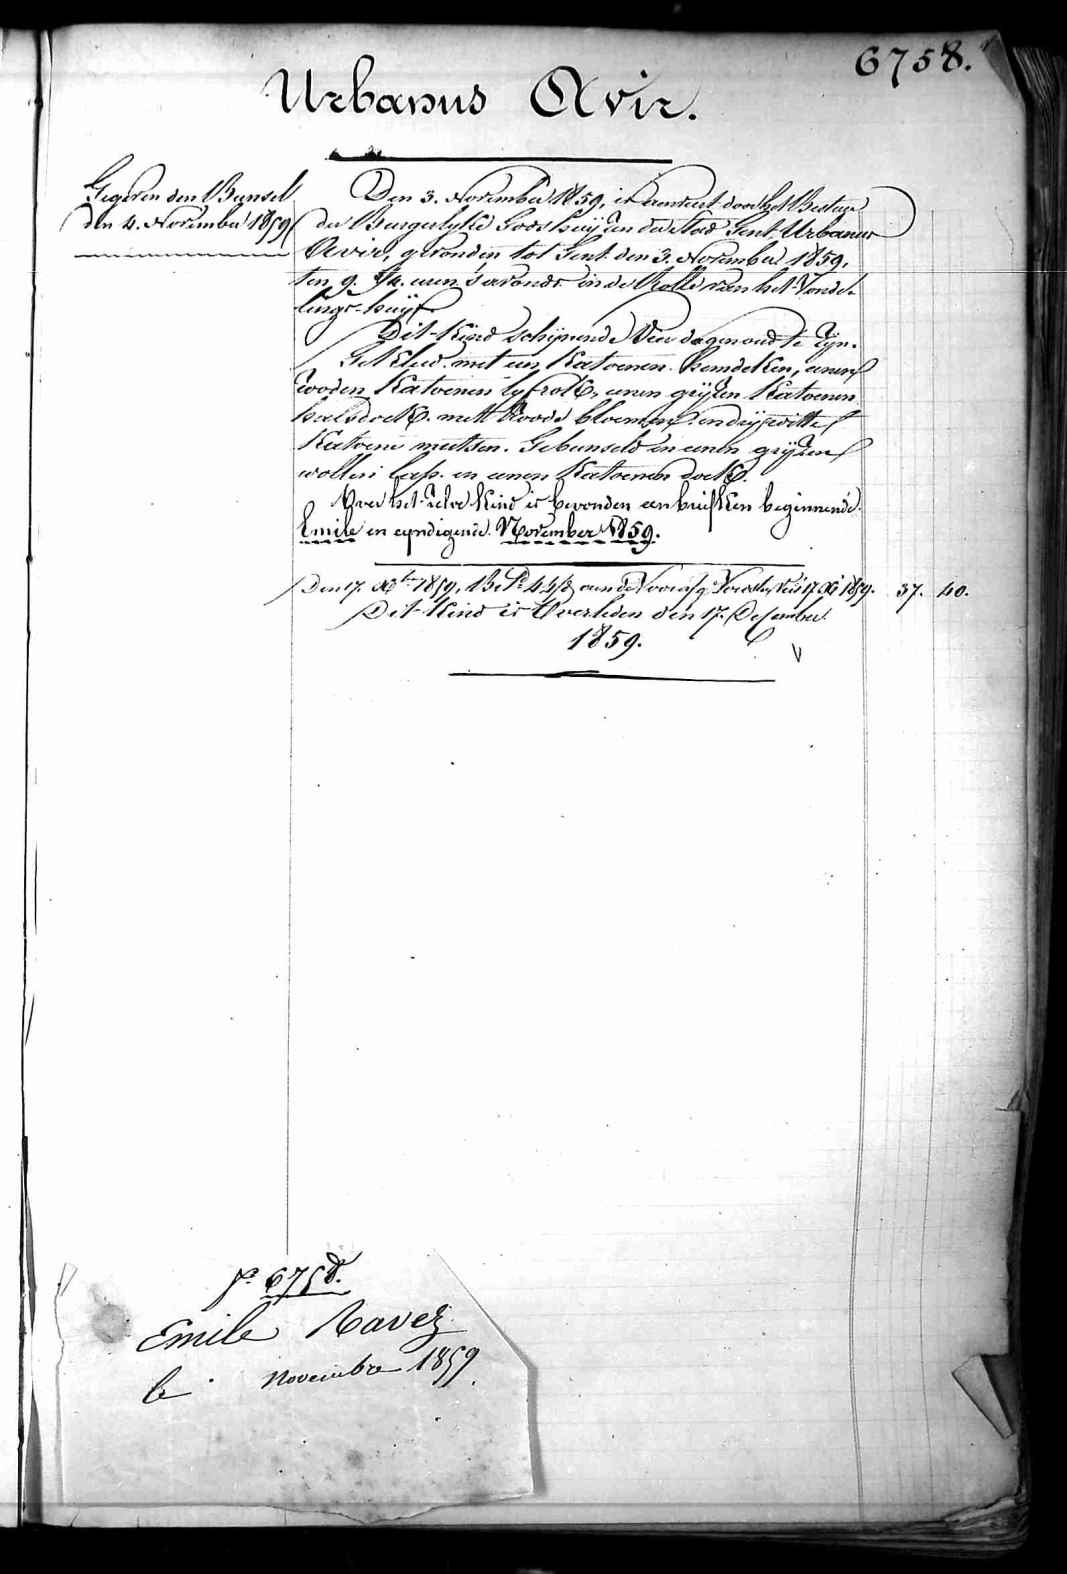 6758.
Urbanus Avir.
Gegeven den Bunsel
den 4. November 1859
Den 3. November 1859, is aanveert door het Bestuur
der Burgerlyke Godshuyzen der Stad Gent, Urbanus
Avir, gevonden tot Gent den 3. November 1859,
ten 9. 1/4. uren 's avonds in de Rolle van het Vonde-
lings-huys.
Dit Kind schynende Vier dagen oud te zyn.
Gekleed met een Katoenen hemdeken, eenen
rooden Katoenen lyfrok, eenen gryzen Katoenen
halsdoek met Roode bloemen, en dry witte
Katoene mutsen. Gebunseld in eenen gryzen
wollen lap en eenen Katoenen doek.
Over het zelve Kind is bevonden een briefken beginnende
Emile en eyndigende November 1859.
Den 17. Xber 1859, 17 Xbr 1859. 37. 40.
Dit Kind is Overleden den 17. December
1859.
No. 6758.
Emile Ravez
le novembre 1859.